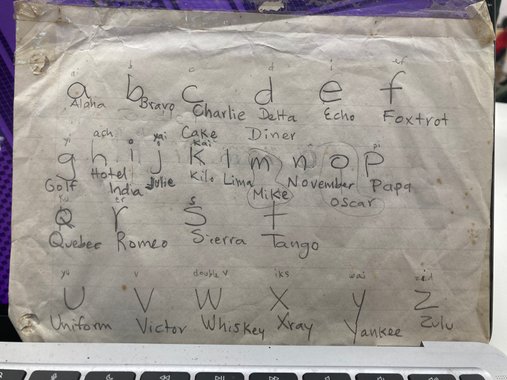 a b c d e f
Alaha Bravo Charlie Delta Echo Foxtrot
Cake Diner
yi ach i yai kai pi
g h i j K l m n o p
Golf Hotel India Julie Kilo Lima Mike November Oscar Papa
ku er s
Q r S t
Quebec Romeo Sierra Tango
yu v double v iks wai zed
U V W X y Z
Uniform Victor Whiskey Xray Yankee Zulu